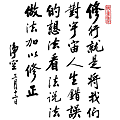 修行就是將我們
對宇宙人生錯誤
的想法看法說法
做法加以修正
淨空